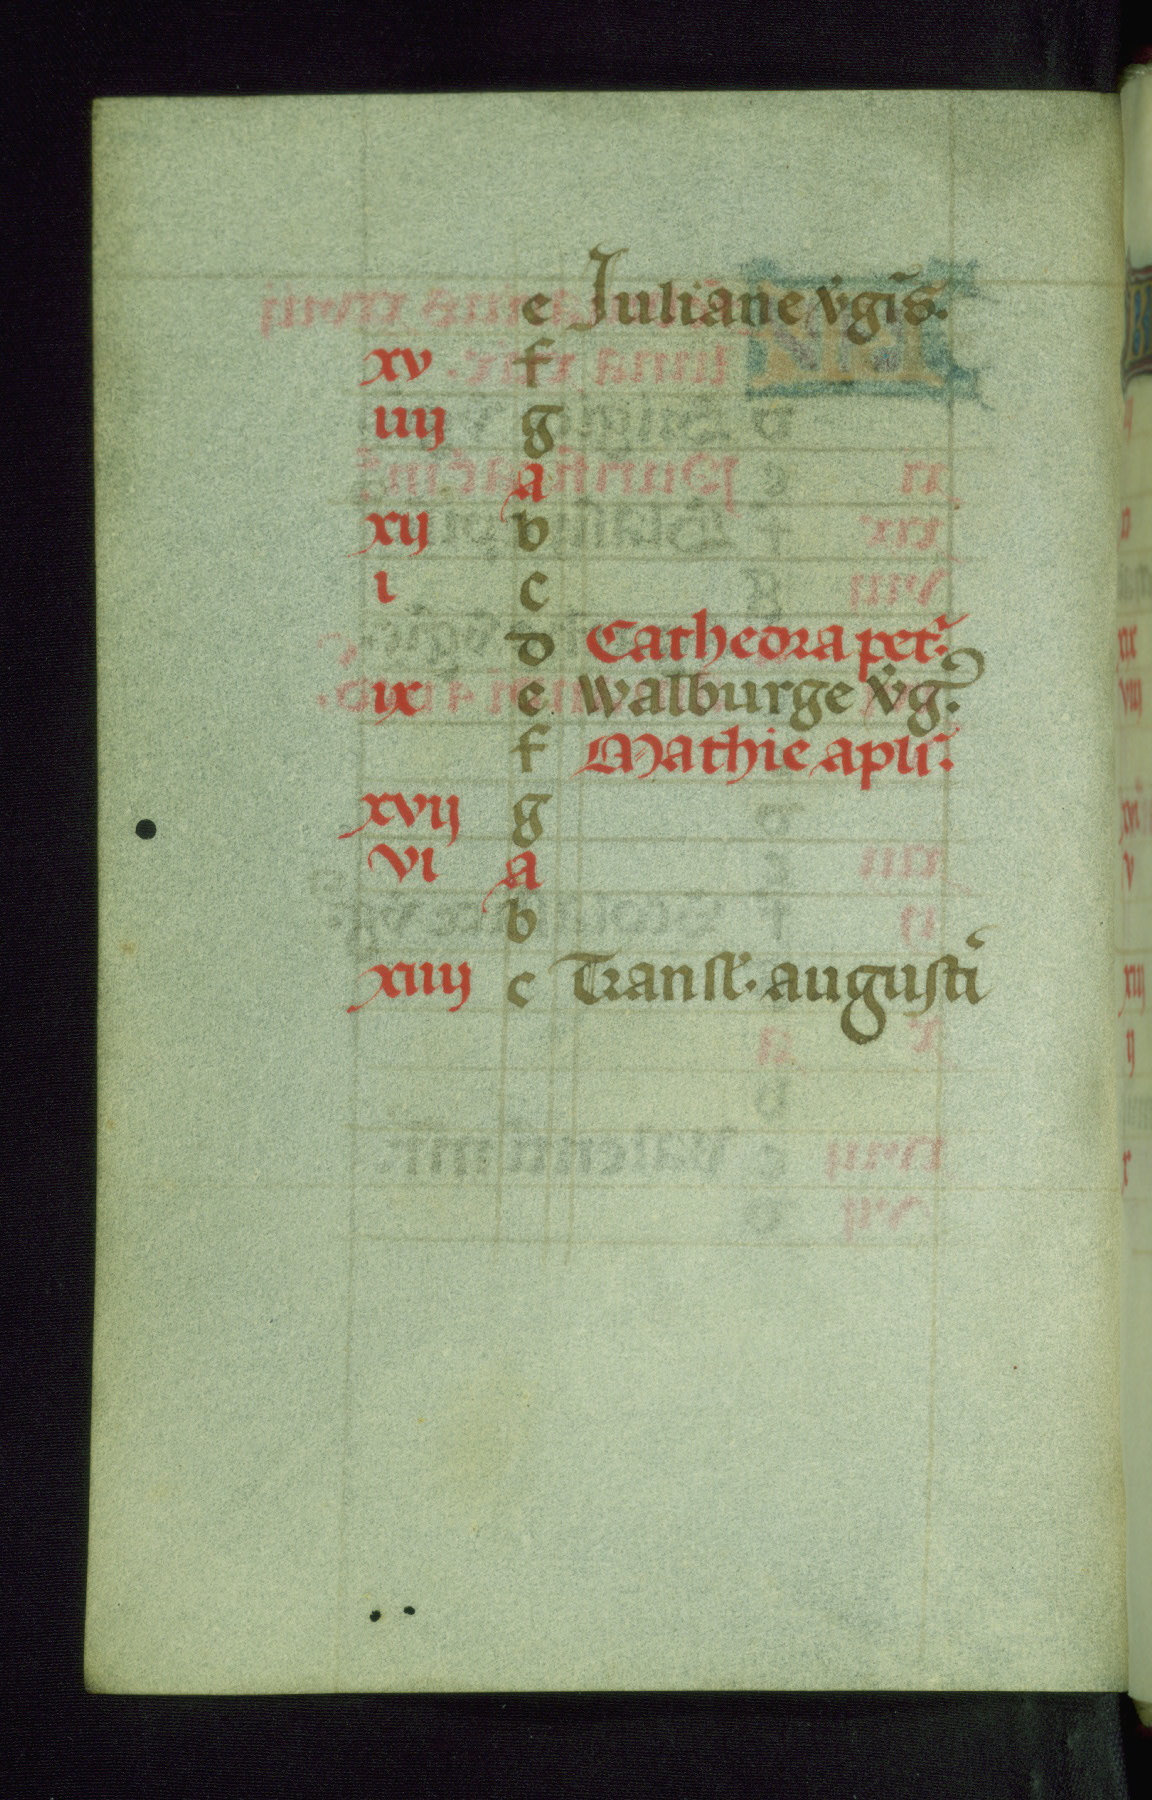 e Juliane v̉gis̄.
xv f
iiij g
a
xij b
i c
d Cathedra pet̉.
ix e walburge v̉g.̉
f Mathie apl̄i.
xvij g
vi a
b
xiiij c Transl̄. augustī